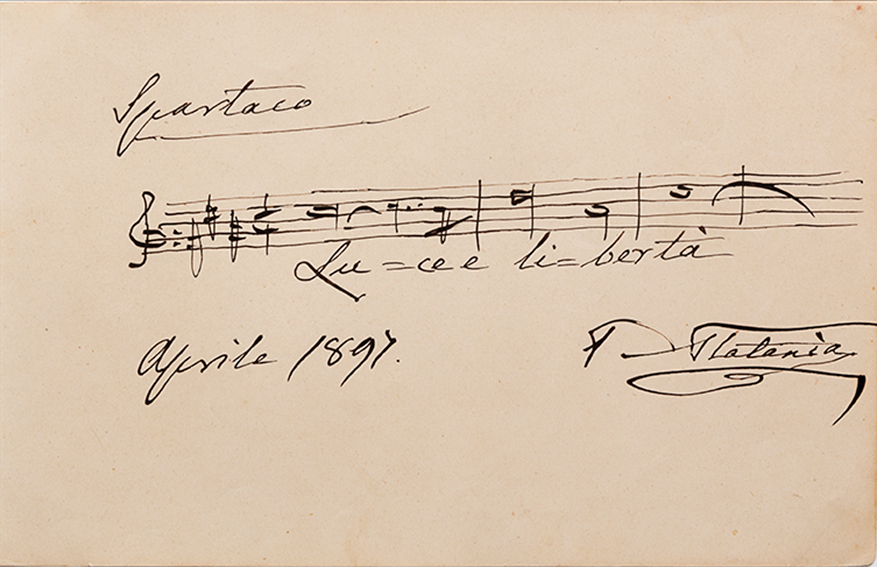 Spartaco
Lu=ce e li=bertà
Aprile 1897.
P Platania